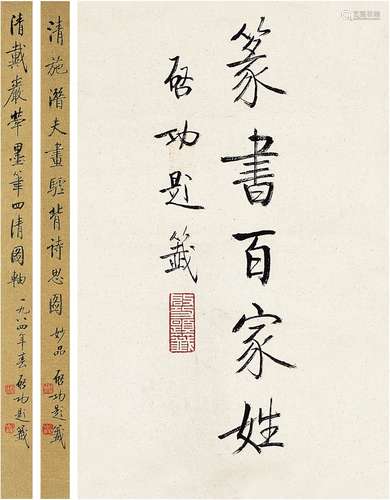 篆書百家姓
啟功題籤
清施潛夫畫驢背詩思圖 妙品 啟功題籤
清戴嚴犖墨筆四清圖軸 一九八四年春 啟功題籤